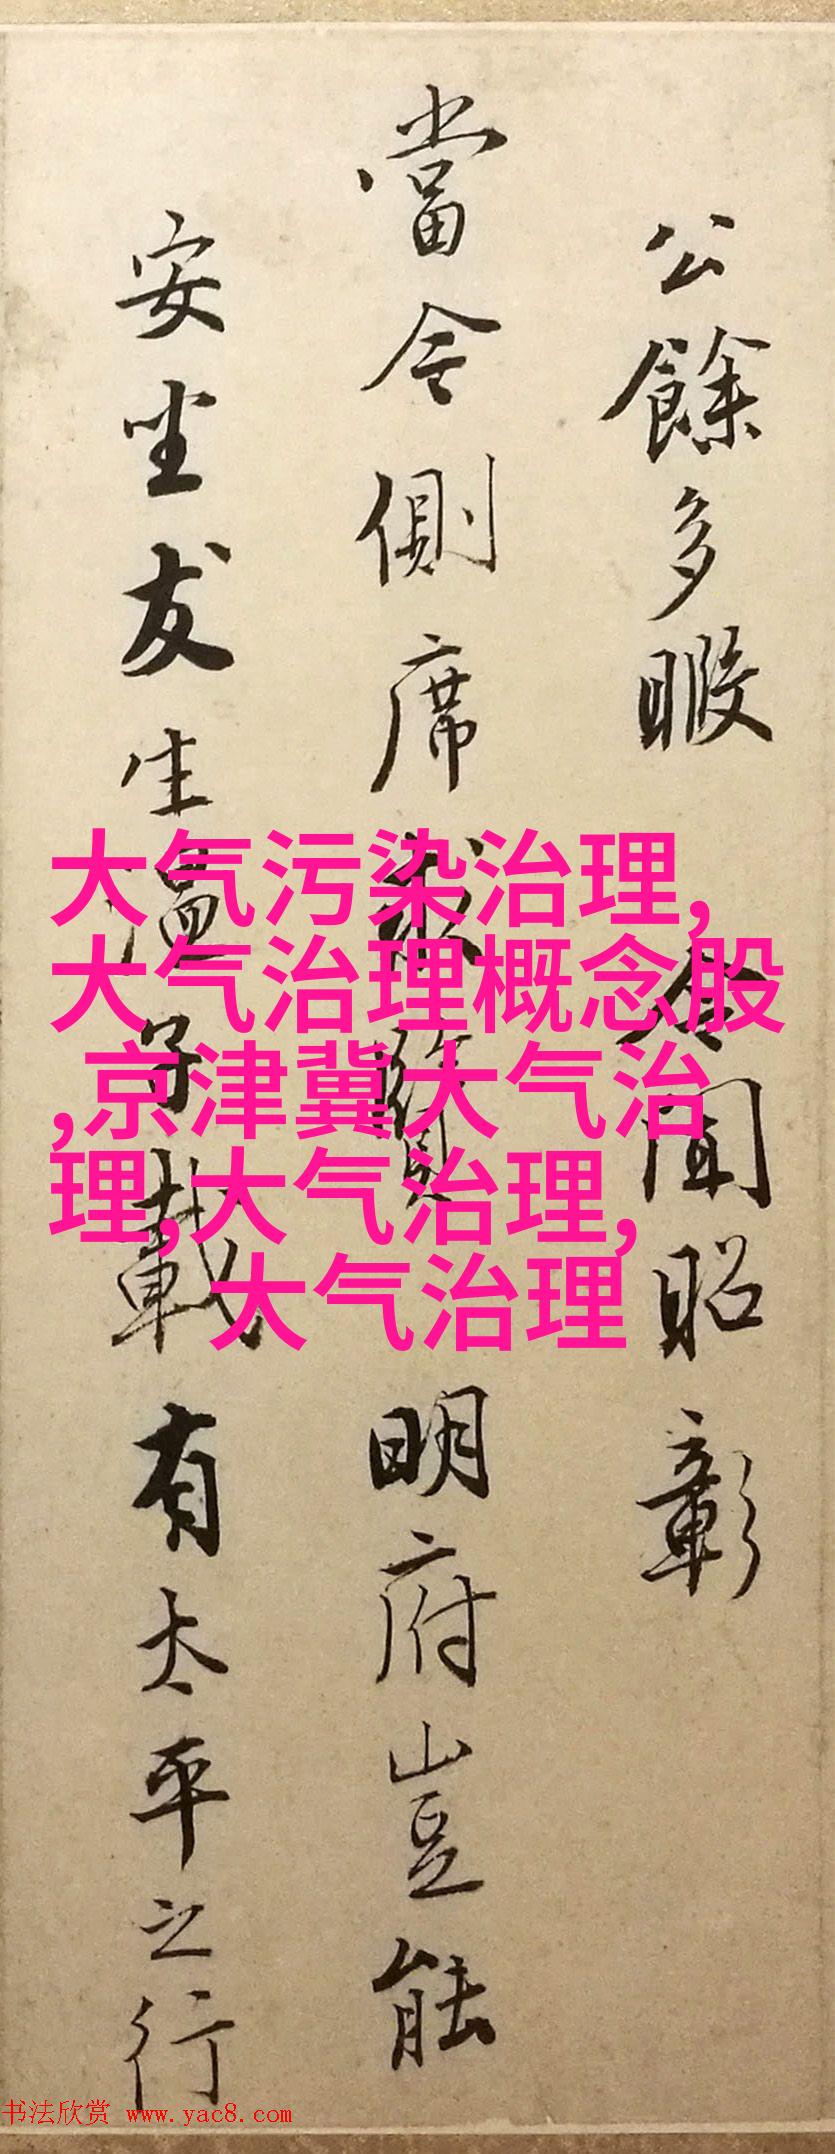 公餘多暇
令聞昭彰
當今側席求賢明府豈能
安坐友生溫子載有太平之行
大气污染治理,
大气治理概念股
,京津冀大气治
理,大气治理,
大气治理
书法欣赏 www.yac8.com